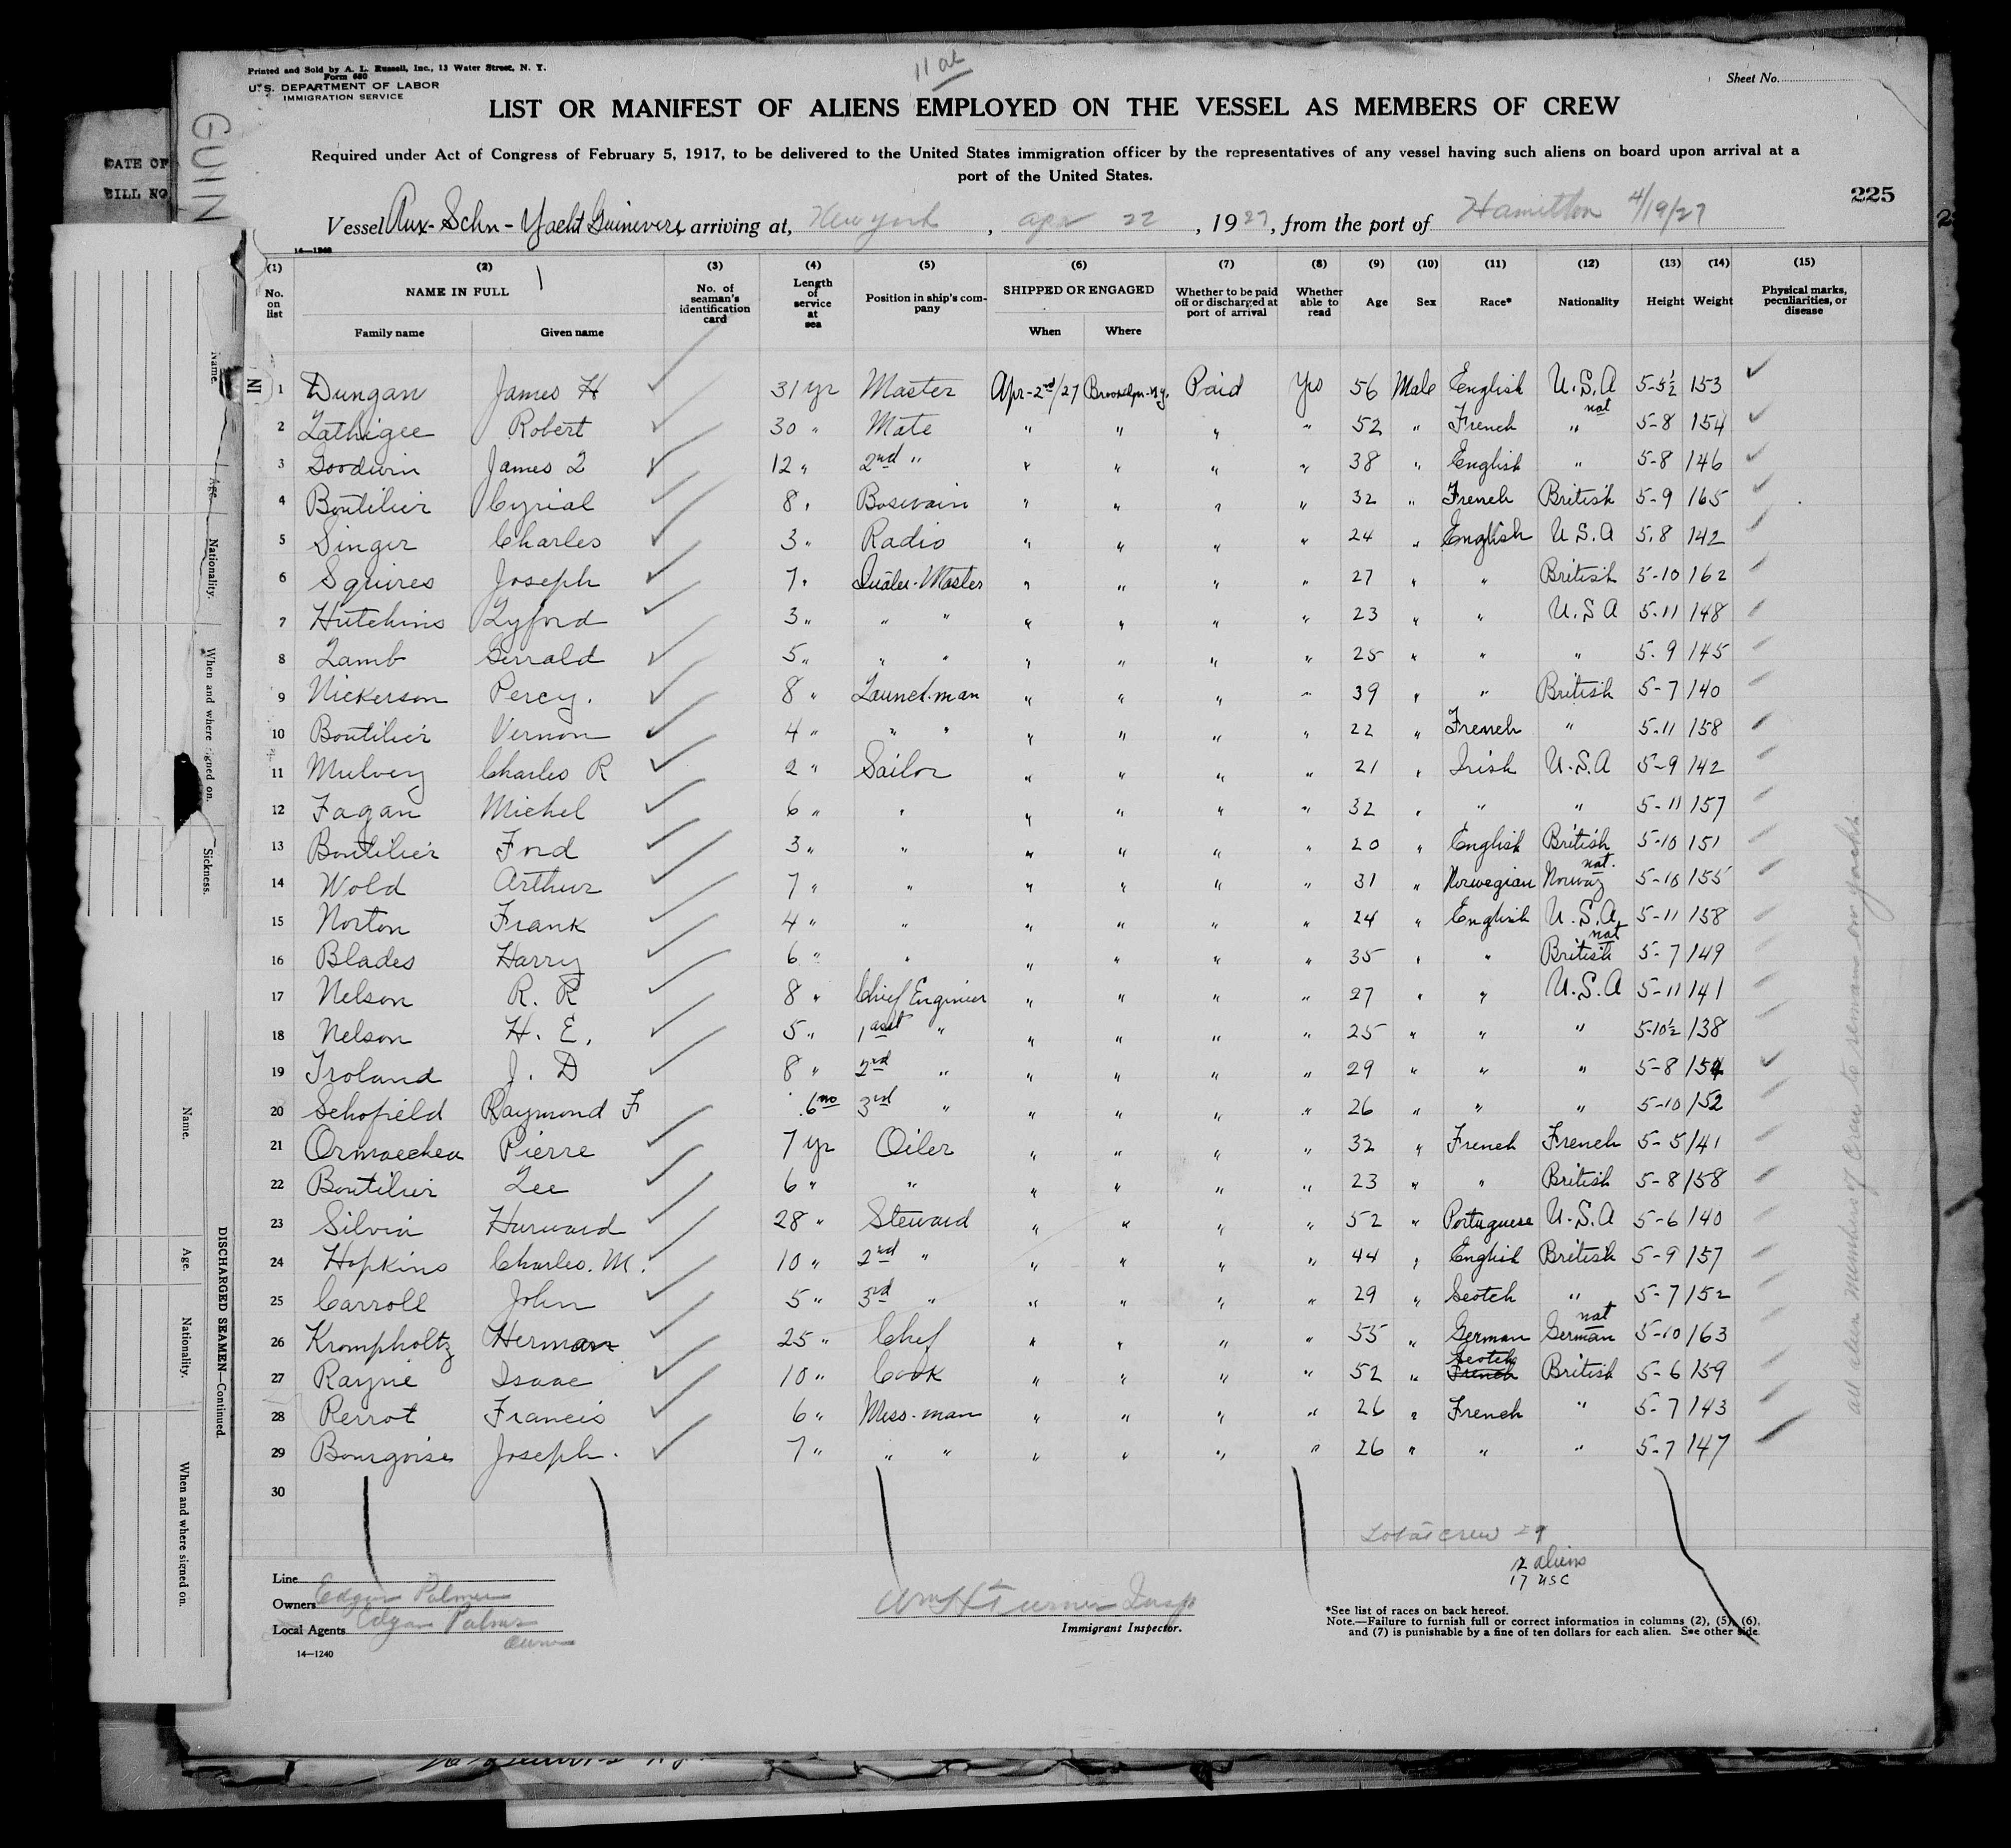 11 am
Printed and Sold by A. L. Russell, Inc., 13 Water Street, N. Y.
Form 680
U. S. DEPARTMENT OF LABOR
IMMIGRATION SERVICE
Sheet No.
LIST OR MANIFEST OF ALIENS EMPLOYED ON THE VESSEL AS MEMBERS OF CREW
Required under Act of Congress of February 5, 1917, to be delivered to the United States immigration officer by the representatives of any vessel having such aliens on board upon arrival at a
port of the United States.
225
Vessel Aux-Schn-Yacht Guinevere, arriving at, New York, apr 22, 1927, from the port of Hamilton 4/19/27
14—1240
(1) (2) (3) (4) (5) (6) (7) (8) (9) (10) (11) (12) (13) (14) (15)
No. on list NAME IN FULL Family name Given name No. of seaman's identification card Length of service at sea Position in ship's company SHIPPED OR ENGAGED When Where Whether to be paid off or discharged at port of arrival Whether able to read Age Sex Race* Nationality Height Weight Physical marks, peculiarities, or disease
1 Dungan James H 31 yr Master Apr-2nd/27 Brooklyn-N.y. Paid Yes 56 Male English U.S.A 5-5½ 153
2 Lathigee Robert 30 " Mate " " " " 52 " French nat " 5-8 154
3 Goodwin James L 12 " 2nd " " " " " 38 " English " 5-8 146
4 Boutilier Cyrial 8 " Boswain " " " " 32 " French British 5-9 165
5 Singer Charles 3 " Radio " " " " 24 " English U.S.A 5.8 142
6 Squires Joseph 7 " Quater-Master " " " " 27 " " British 5-10 162
7 Hutchins Lyford 3 " " " " " " " 23 " " U.S.A 5-11 148
8 Lamb Gerrald 5 " " " " " " " 25 " " " 5-9 145
9 Nickerson Percy. 8 " Launch-man " " " " 39 " " British 5-7 140
10 Boutilier Vernon 4 " " " " " " " 22 " French " 5-11 158
11 Mulvey Charles R 2 " Sailor " " " " 21 " Irish U.S.A 5-9 142
12 Fagan Michel 6 " " " " " " 32 " " " 5-11 157
13 Boutilier Ford 3 " " " " " " 20 " English British 5-10 151
14 Wold Arthur 7 " " " " " " 31 " Norwegian nat. Norway 5-10 155
15 Norton Frank 4 " " " " " " 24 " English U.S.A 5-11 158
16 Blades Harry 6 " " " " " " 35 " " nat British 5-7 149
17 Nelson R. R 8 " Chief Enginier " " " " 27 " " U.S.A 5-11 141
18 Nelson H. E. 5 " 1 asst " " " " " 25 " " " 5-10½ 138
19 Troland J. D 8 " 2nd " " " " " 29 " " " 5-8 154
20 Schofield Raymond F 6 mo 3rd " " " " " 26 " " " 5-10 152
21 Ormaechea Pierre 7 yr Oiler " " " " 32 " French French 5-5 141
22 Boutilier Lee 6 " " " " " " 23 " " British 5-8 158
23 Silvia Harward 28 " Steward " " " " 52 " Portuguese U.S.A 5-6 140
24 Hopkins Charles. M. 10 " 2nd " " " " " 44 " English British 5-9 157
25 Carroll John 5 " 3rd " " " " " 29 " Scotch " 5-7 152
26 Krompholtz Herman 25 " Chef " " " " 55 " German nat German 5-10 163
27 Rayne Isaac 10 " Cook " " " " 52 " Scotch French British 5-6 159
28 Perrot Francis 6 " Mess-man " " " " 26 " French " 5-7 143
29 Bourgoise Joseph. 7 " " " " " " " 26 " " " 5-7 147
30
all alien members of Crew to remain on yacht
Total crew 29
12 aliens
17 USC
Line
Owners Edgar Palmer
Local Agents Edgar Palmer
Owner
14—1240
Wm H Turner Insp
Immigrant Inspector.
*See list of races on back hereof.
Note.—Failure to furnish full or correct information in columns (2), (5), (6),
and (7) is punishable by a fine of ten dollars for each alien. See other side.
DATE OF
BILL NO
GUIN
IN
Name.
Age.
Nationality.
When and where signed on.
Sickness.
DISCHARGED SEAMEN—Continued.
Name.
Age.
Nationality.
When and where signed on.